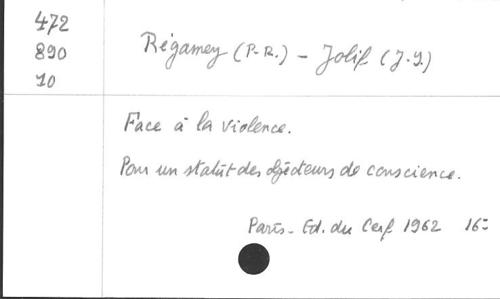 472
890
10
Régamey (P-R.) - Jolif (J.Y.)
Face à la violence.
Pour un statut des objecteurs de conscience.
Paris - Ed. du Cerf 1962 16°